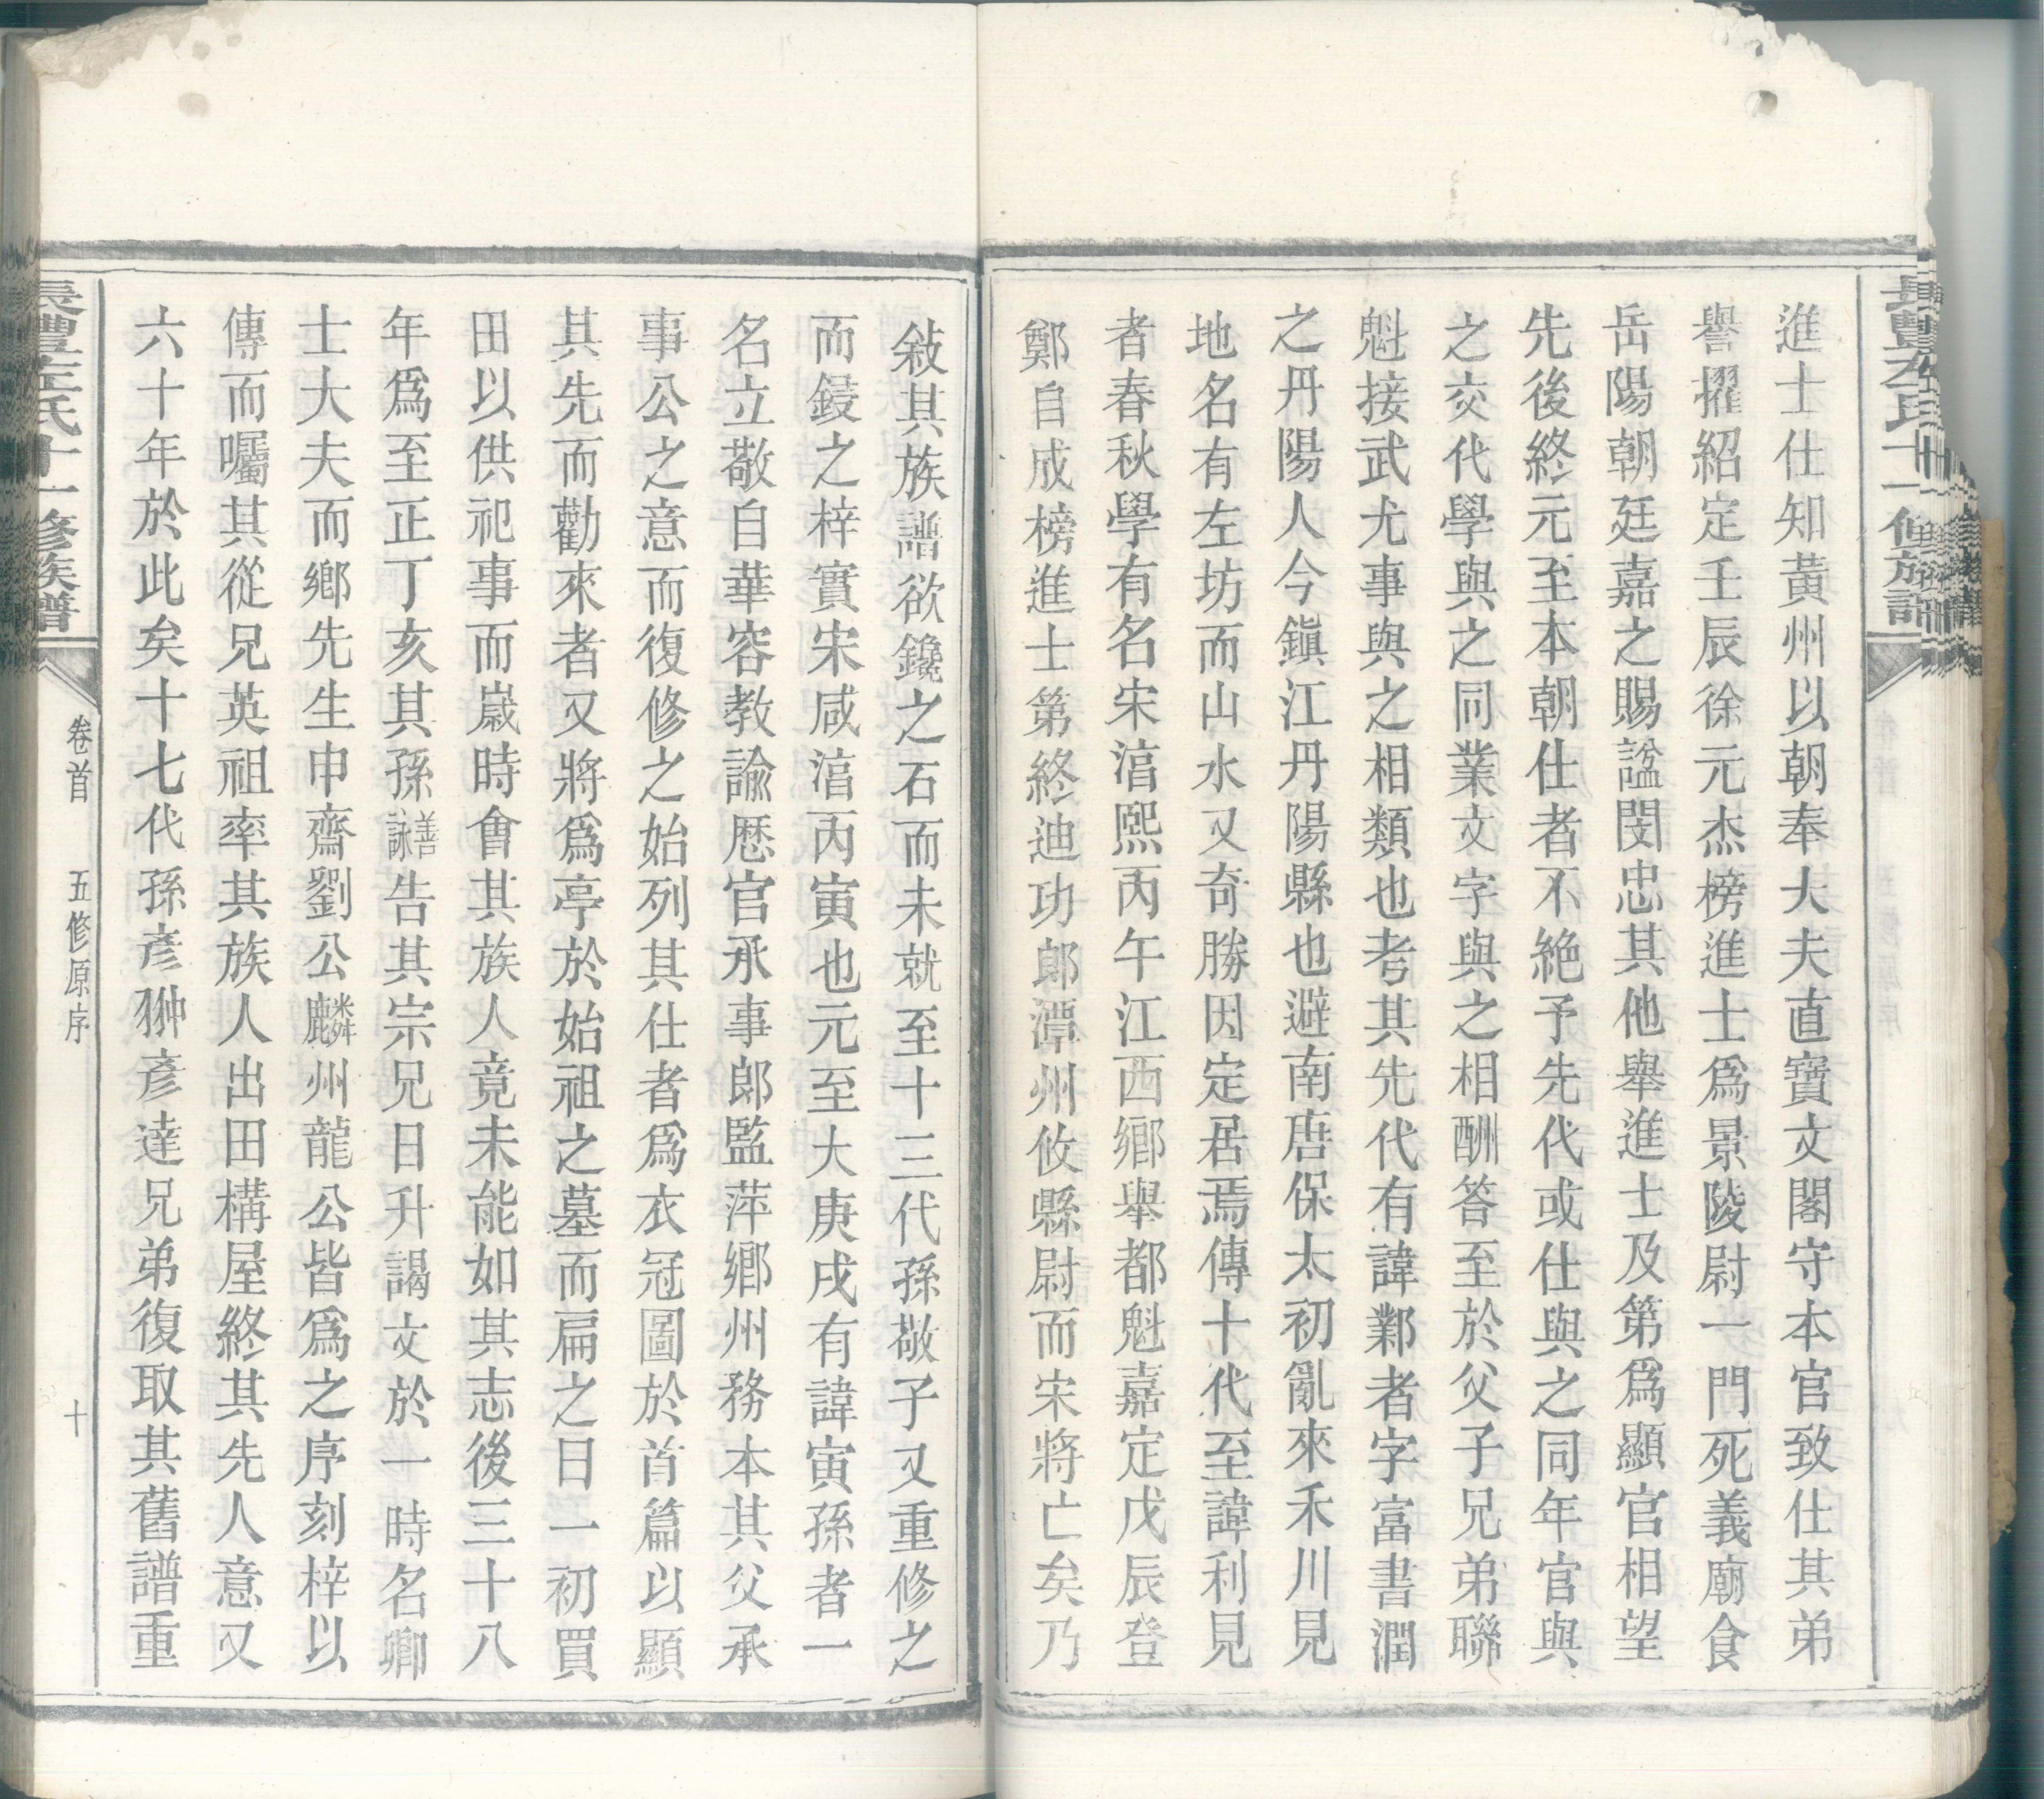 長豐左氏十一修族譜
進士仕知黃州以朝奉大夫直寶文閣守本官致仕其弟
譽擢紹定壬辰徐元杰榜進士爲景陵尉一門死義廟食
岳陽朝廷嘉之賜諡閔忠其他舉進士及第爲顯官相望
先後終元至本朝仕者不絶予先代或仕與之同年官與
之交代學與之同業文字與之相酬答至於父子兄弟聯
魁接武尤事與之相類也考其先代有諱鄴者字富書潤
之丹陽人今鎭江丹陽縣也避南唐保太初亂來禾川見
地名有左坊而山水又奇勝因定居焉傳十代至諱利見
者春秋學有名宋湻熙丙午江西鄉舉都魁嘉定戊辰登
鄭自成榜進士第終迪功郞潭州攸縣尉而宋將亡矣乃
敍其族譜欲鑱之石而未就至十三代孫敬子又重修之
而鋟之梓實宋咸湻丙寅也元至大庚戌有諱寅孫者一
名立敬自華容教諭歴官承事郞監萍鄉州務本其父承
事公之意而復修之始列其仕者爲衣冠圖於首篇以顯
其先而勸來者又將爲亭於始祖之墓而扁之曰一初買
田以供祀事而嵗時會其族人竟未能如其志後三十八
年爲至正丁亥其孫善詠告其宗兄日升謁文於一時名卿
士大夫而鄉先生申齋劉公麟州龍公皆爲之序刻梓以
傳而囑其從兄英祖率其族人出田構屋終其先人意又
六十年於此矣十七代孫彥翀彥達兄弟復取其舊譜重
長豐左氏十一修族譜
卷首 五修原序 十